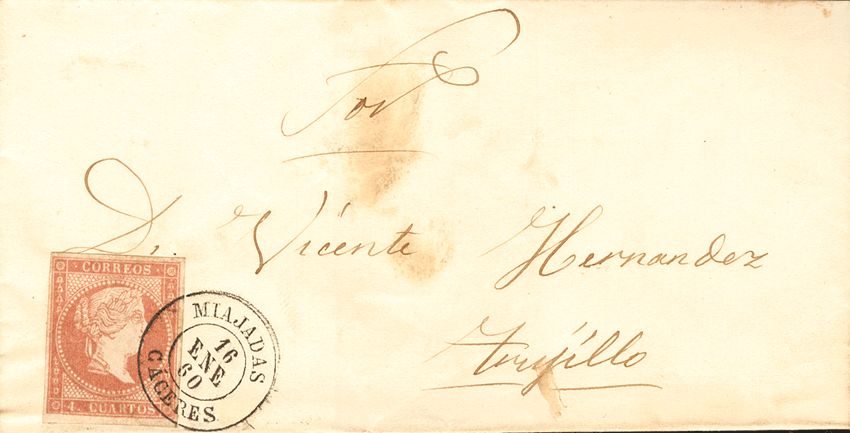 Sor
D. Vicente Hernandez
Trujillo
CORREOS
4. CUARTOS
MIAJADAS
16
ENE
60
CACERES